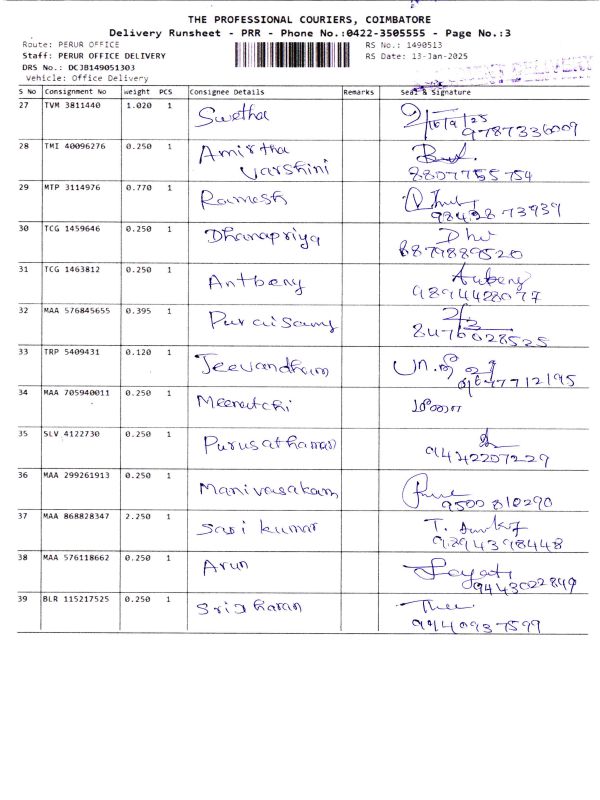 THE PROFESSIONAL COURIERS, COIMBATORE
Delivery Runsheet - PRR - Phone No.:0422-3505555 - Page No.:3
Route: PERUR OFFICE RS No.: 1490513
Staff: PERUR OFFICE DELIVERY RS Date: 13-Jan-2025
DRS No.: DCJB149051303
Vehicle: Office Delivery
S No Consignment No weight PCS Consignee Details Remarks Seal & Signature
27 TVM 3811440 1.020 1 Swetha
9787336009
28 TMI 40096276 0.250 1 Amirtha
Varshini
8807755754
29 MTP 3114976 0.770 1 Ramesh
98428 73939
30 TCG 1459646 0.250 1 Dhanapriya Dhu
8879889520
31 TCG 1463812 0.250 1 Antbeny
9894428077
32 MAA 576845655 0.395 1 Puraisamy
8476028525
33 TRP 5409431 0.120 1 Jeevandham
34 MAA 705940011 0.250 1 Meenatchi
35 SLV 4122730 0.250 1 Purusathaman
9442207229
36 MAA 299261913 0.250 1 Manivasakam
9500810290
37 MAA 868828347 2.250 1 Sasi kumar
9294398448
38 MAA 576118662 0.250 1 Arun
9443022849
39 BLR 115217525 0.250 1 Sridharan
9940937599